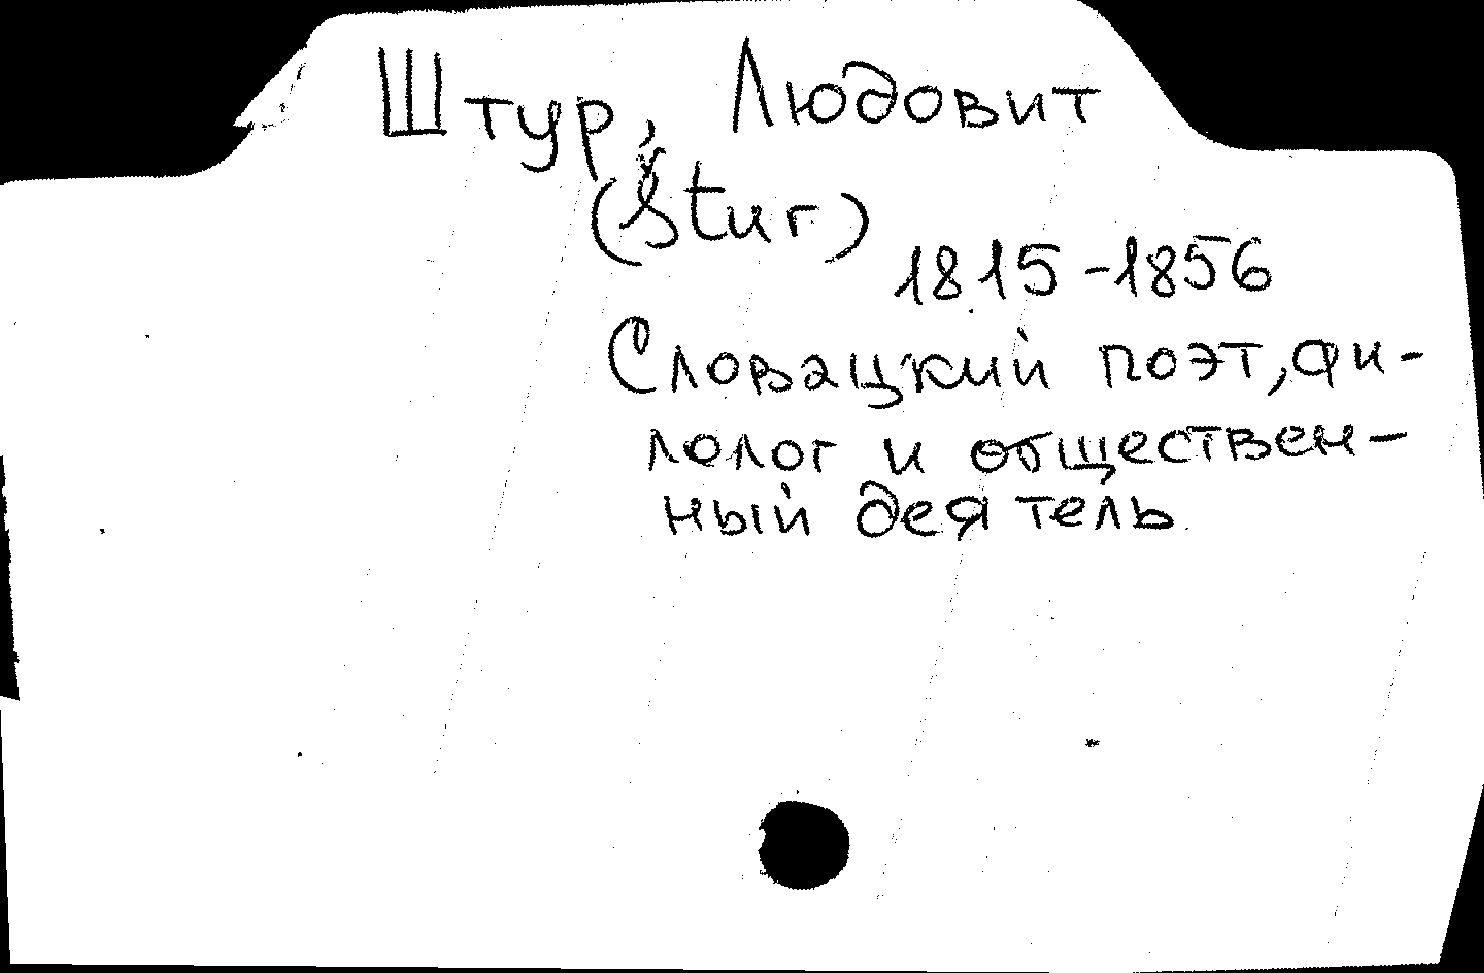 Штур, Людовит
(Štur)
1815-1856
Словацкий поэт, фи-
лолог и обществен-
ный деятель